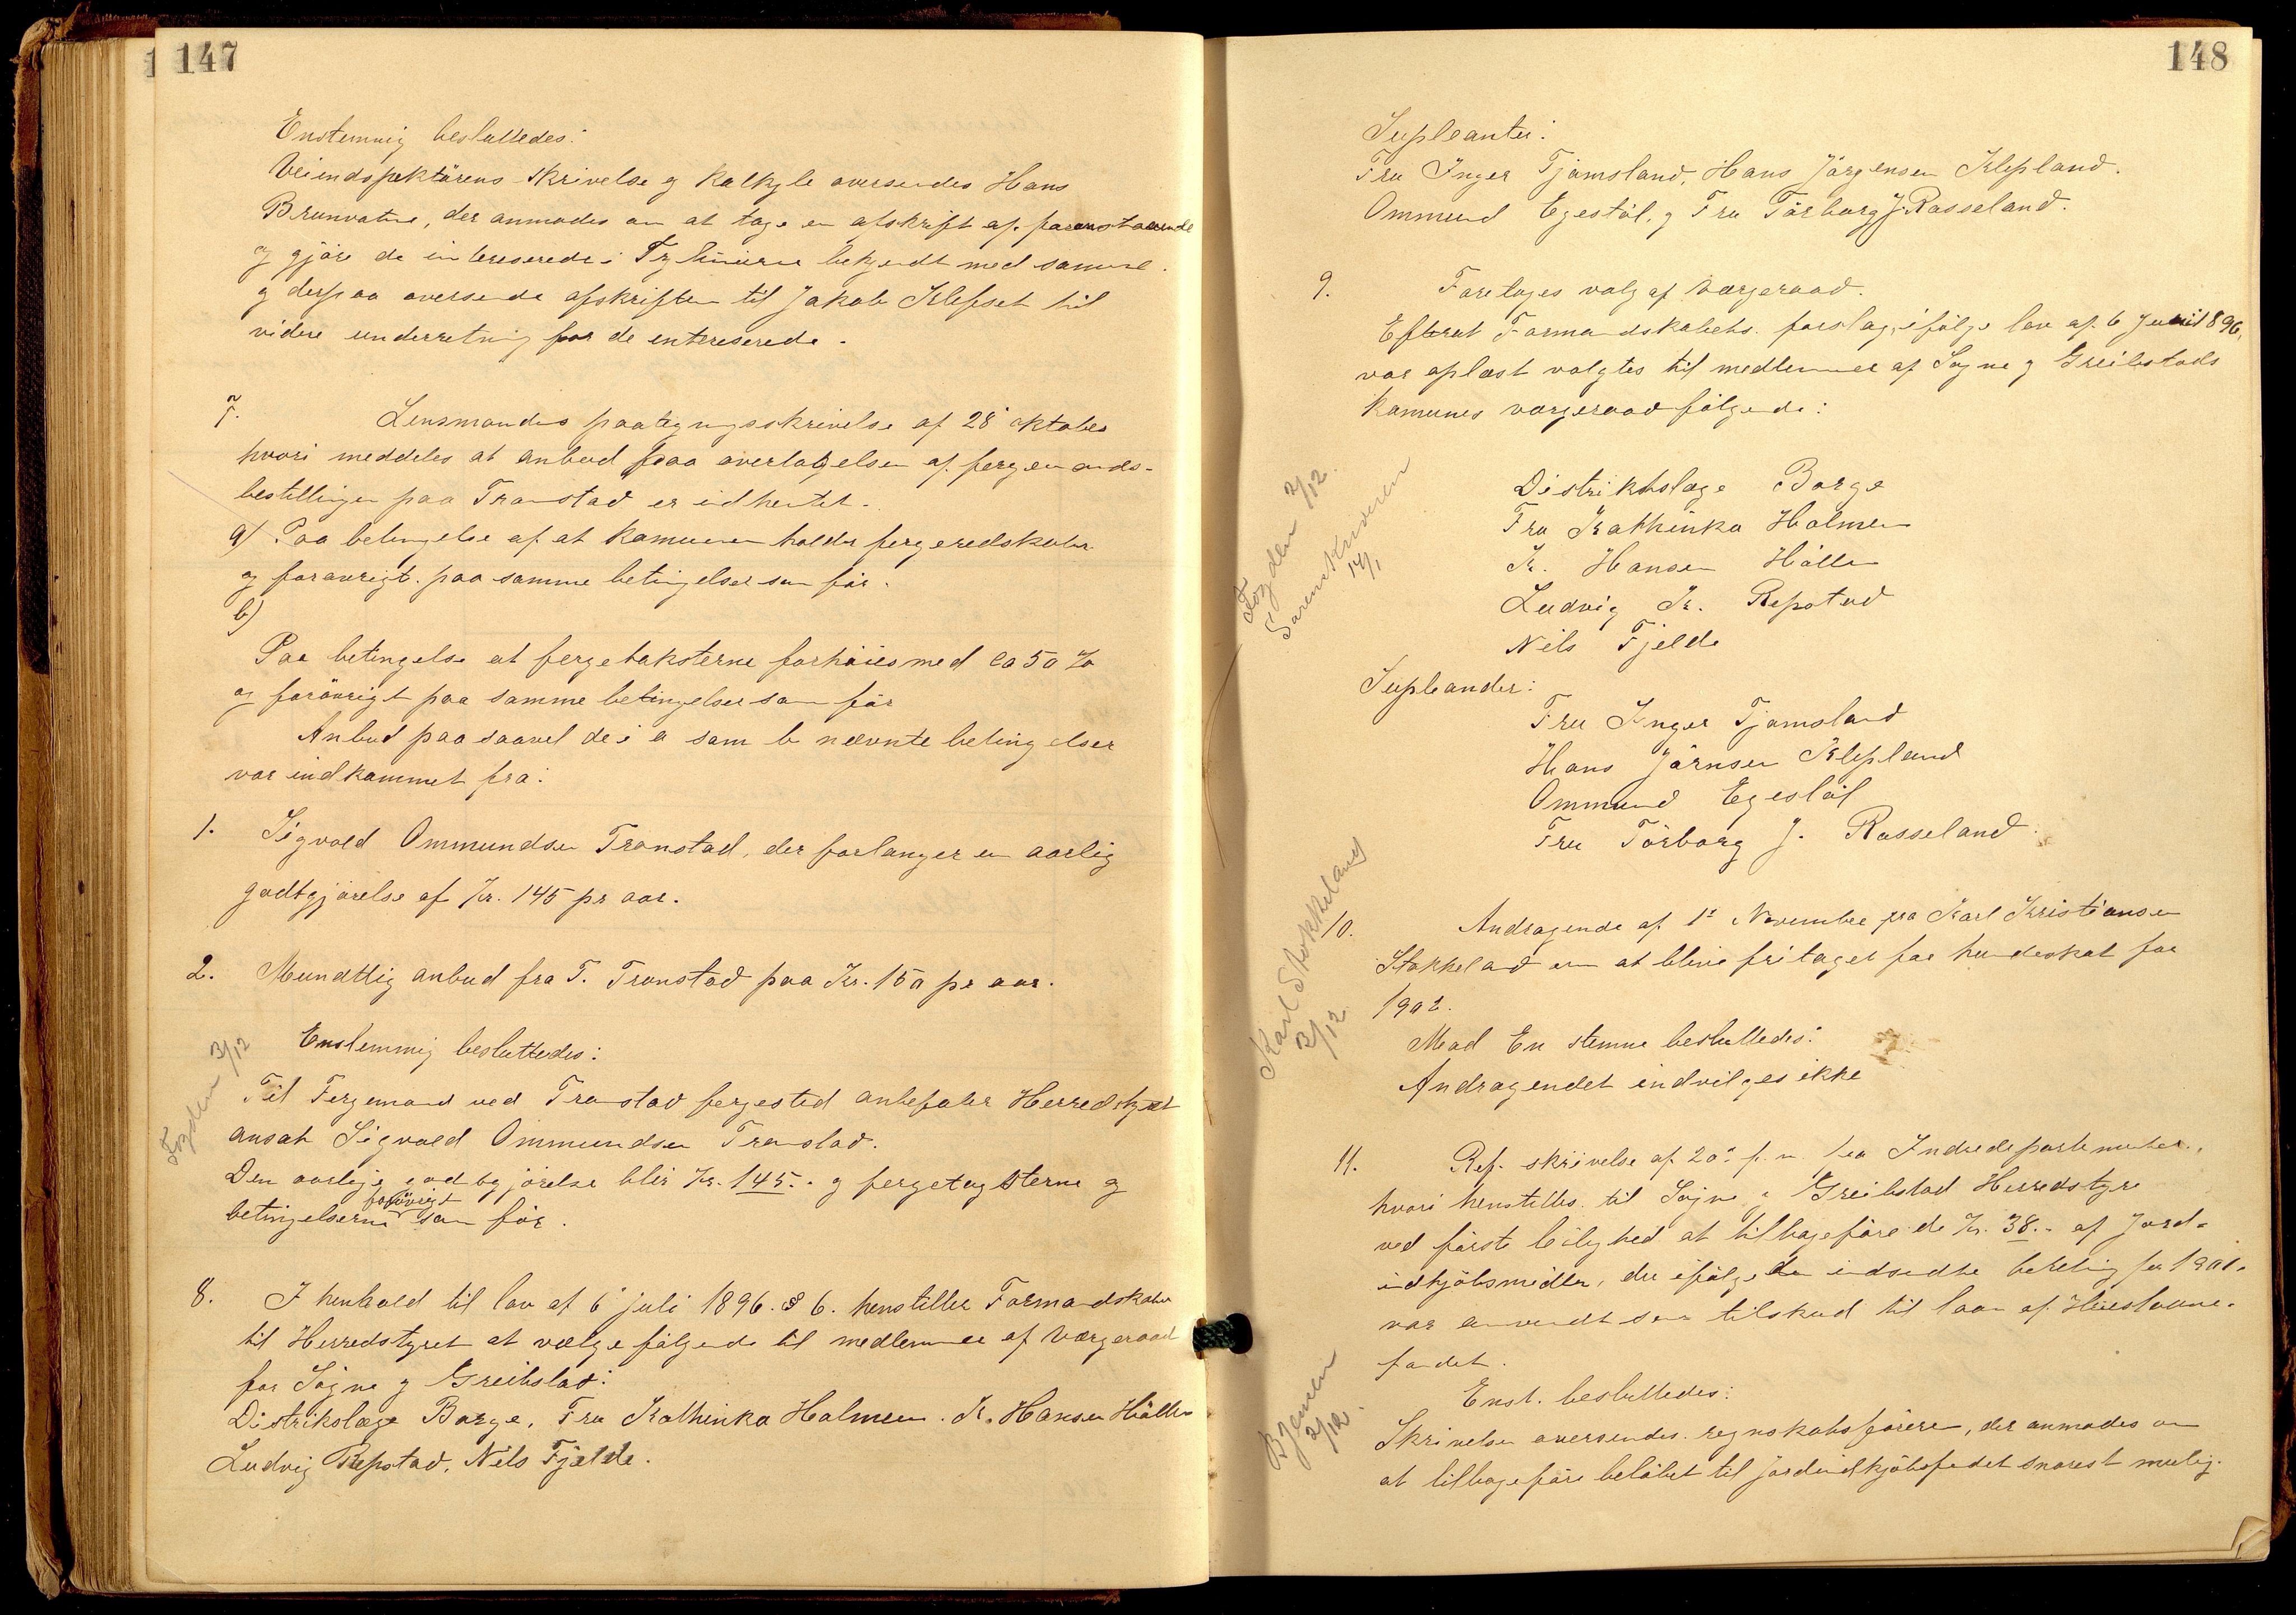 147
Enstemmig besluttedes:
Veiindspektörens skrivelse og kalkyle oversendes Hans
Brunvatne, der anmodes om at tage en afskrift af foranstaaende
og gjöre de intereserede i bekjendt med samme.
og derpaa oversende afskriften til Jakob Klepset til
videre underretning for de entereserede.
7. Lensmandens paategningsskrivelse af 28' oktober
hvori meddeles at anbud paa overtagelsen af fergemands-
bestillingen paa Tronstad er indhentet.
a) Paa betingelse af at Komunen holder fergeredskaber
og foravrigt paa samme betingelser som för.
b)
Paa betingelse at fergetaksterne forhöies med ca 50 %
og forövrigt paa samme betingelser som för
Anbud paa saavel de i a som b nævnte betingelser
var indkommet fra:
1. Sigvald Ommundsen Tronstad, der forlanger en aarlig
godtgjörelse af Kr. 145 pr aar.
2. Mundtlig anbud fra T. Tronstad paa Kr. 150 pr aar.
Enstemmig besluttedes:
Fogden 3/12
Til Fergemand ved Tronstad fergested anbefaler Herredstyret
ansat Sigvald Ommundsen Tronstad.
Den aarlige godtgjörelse blir Kr. 145.- og fergetagsterne og
betingelserne forövrigt som för.
8. I henhold til lov af 6' juli 1896. § 6. henstiller Formandskabet
til Herredstyret at vælge fölgende til medlemmer af Værgeraad
for Sögne og Greibstad:
Distrikslæge Borge, Fru Kathinka Holmen. K. Hansen Hölle
Ludvig Repstad, Nils Fjelde.
148
Supleanter:
Fru Inger Tjomsland, Hans Jörgensen Klepland.
Ommund Egestöl, og Fru Törborg J. Rosseland.
9. Foretoges valg af Værgeraad.
Efterat Formandskabets forslag, ifölge lov af 6 Juni 1896,
var oplæst valgtes til medlemmer af Sögne og Greibstads
Komunes værgeraad fölgende:
Fogden 2/12.
Sorenskriveren
14/1
Distriktslæge Borge
Fru Kathinka Holmen
K. Hansen Hölle
Ludvig Kr. Repstad
Nils Fjelde
Supleander:
Fru Inger Tjomsland
Hans Jörnsen Klepland
Ommund Egestöl
Fru Törborg J. Rosseland.
Karl Stokkeland
3/12
10. Andragende af 1ste November fra Karl Kristiansen
Stokkeland om at blive fritaget for hundeskat for
1902.
Mod En stemme besluttedes:
Andragendet indvilges ikke
11. Ref. skrivelse af 20de f. m. fra Indredepartementet,
hvori henstilles til Sögne og Greibstad Herredstyre
ved förste leilighed at tilbageföre de Kr. 38.- af Jord-
indkjöbsmidler, der ifölge den indsendte beretning for 1901.
var anvendt som tilskud til laan af Huuslaane-
fondet.
Enst. besluttedes:
2/12.
Skrivelsen oversendes regnskabsföreren, der anmodes om
at tilbageföre belöbet til jordindkjöbsfondet snarest mulig.